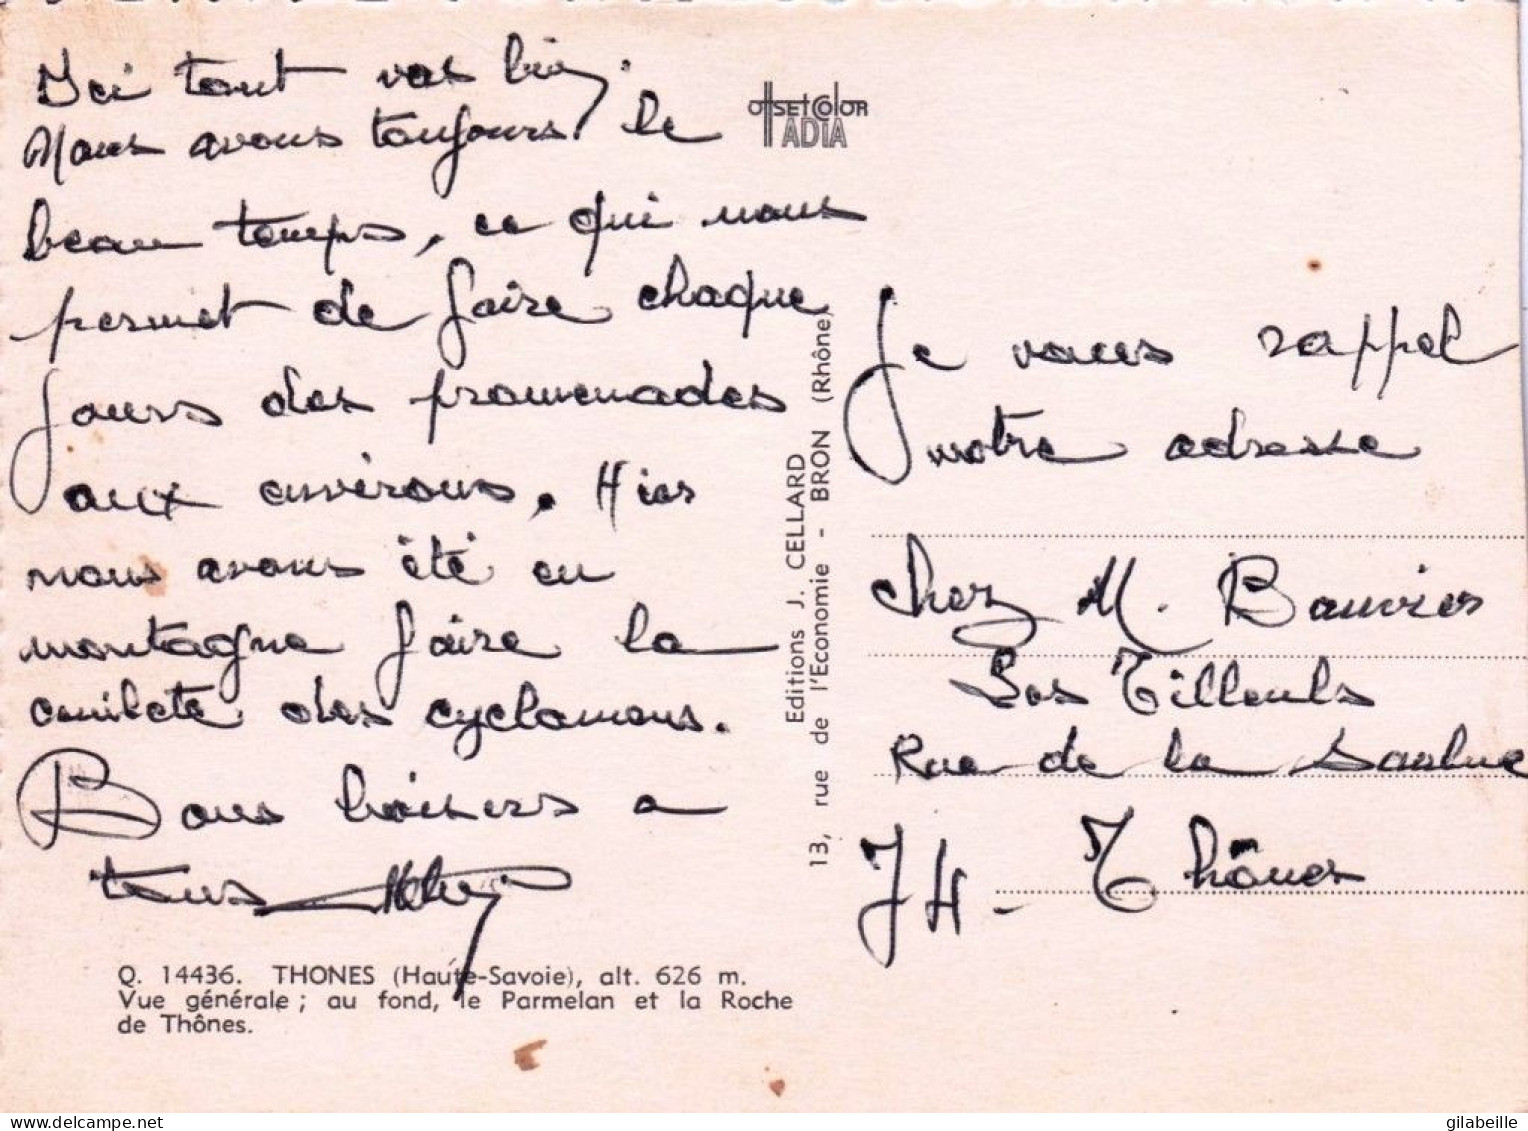 Ici tout vas bien.
Nous avons toujours le
beau temps, ce qui nous
permet de faire chaque
jours des promenades
aux environs. Hier
nous avons été en
montagne faire la
cueilete des cyclamens.
Bons baisers a
tous
Q. 14436. THONES (Haute-Savoie), alt. 626 m.
Vue générale ; au fond, le Parmelan et la Roche
de Thônes.
OffSETCOlOR
ADIA
Editions J. CELLARD
13, rue de l'Economie - BRON (Rhône)
Je vous rappel
notre adresse
chez M. Bouvier
Les Tilleuls
Rue de la
74 - Thônes
gilabeille